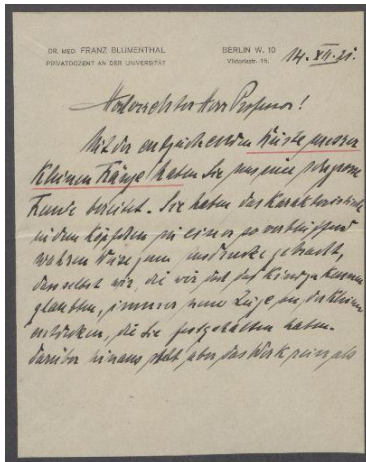 DR. MED. FRANZ BLUMENTHAL
PRIVATDOZENT AN DER UNIVERSITÄT
BERLIN W. 10
Viktoriastr. 15.
14. XII. 21.
Hochverehrter Herr Professor!
Mit der entzückenden Büste unserer
kleinen Ränge haben Sie uns eine sehr grosse
Freude bereitet. Sie haben das Karakteristische
in dem Köpfchen zu einer so verblüffend
wahren Weise zum Ausdrucke gebracht,
dass selbst wir, die wir das Kind zu kennen
glaubten, immer neue Züge an der Kleinen
entdecken, die Sie festgehalten haben.
Darüber hinaus steht aber das Werk rein als